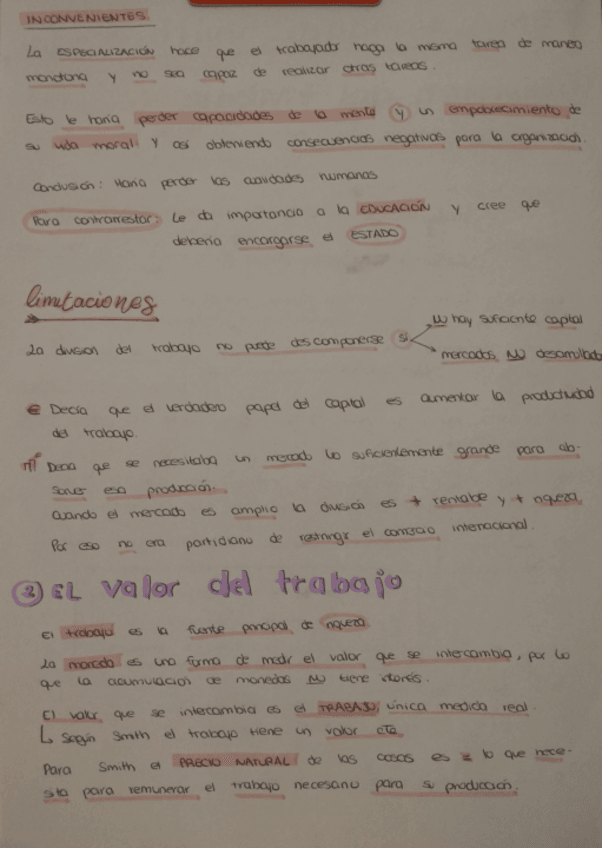 INCONVENIENTES.
La ESPECIALIZACIÓN hace que el trabajador haga la misma tarea de manera
monótona y no sea capaz de realizar otras tareas.
Esto le haría perder capacidades de la mente y un empobrecimiento de
su vida moral y así obteniendo consecuencias negativas para la organización.
Conclusión: Haría perder las cualidades humanas
Para contrarrestar: Le da importancia a la EDUCACIÓN y cree que
debería encargarse el ESTADO
limitaciones
La división del trabajo no puede descomponerse si
NO hay suficiente capital
mercados NO desarrollado
€ Decía que el verdadero papel del capital es aumentar la productividad
del trabajo.
Decía que se necesitaba un mercado lo suficientemente grande para ab-
sorver esa producción.
Cuando el mercado es amplio la división es + rentable y + riqueza.
Por eso no era partidiano de restringir el comercio internacional.
② EL valor del trabajo
El trabajo es la fuente principal de riqueza
La moneda es una forma de medir el valor que se intercambia, por lo
que la acumulación de monedas NO tiene interés.
El valor que se intercambia es el TRABAJO, única medida real.
↳ Según Smith el trabajo tiene un valor cte.
Para Smith el PRECIO NATURAL de las cosas es = lo que nece-
sita para remunerar el trabajo necesario para su producción.